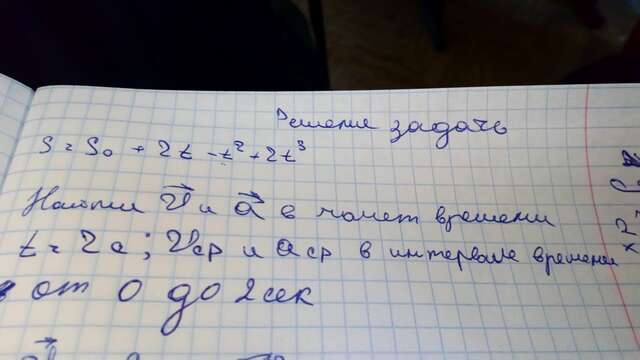 Решение задачь
S = S₀ + 2t - t² + 2t³
Найти v⃗ и a⃗ в момет времени
t = 2с; vср и aср в интервале времени
от 0 до 2 сек